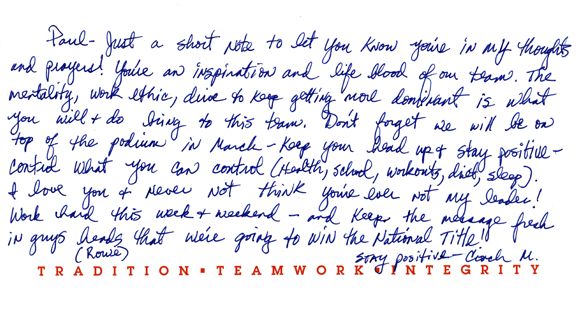 Paul- Just a short note to let you know you're in my thoughts
and prayers! You're an inspiration and life blood of our team. The
mentality, work ethic, drive to keep getting more dominant is what
you will + do bring to this team. Don't forget we will be on
top of the podium in March - Keep your head up + stay positive-
control what you can control (Health, school, workouts, diet, sleep).
I love you + never not think you're ever not my leader!
Work hard this week + weekend - and keep the message fresh
in guys heads that we're going to win the National Title!!
(Rowe) stay positive- Coach M.
TRADITION▪TEAMWORK▪INTEGRITY